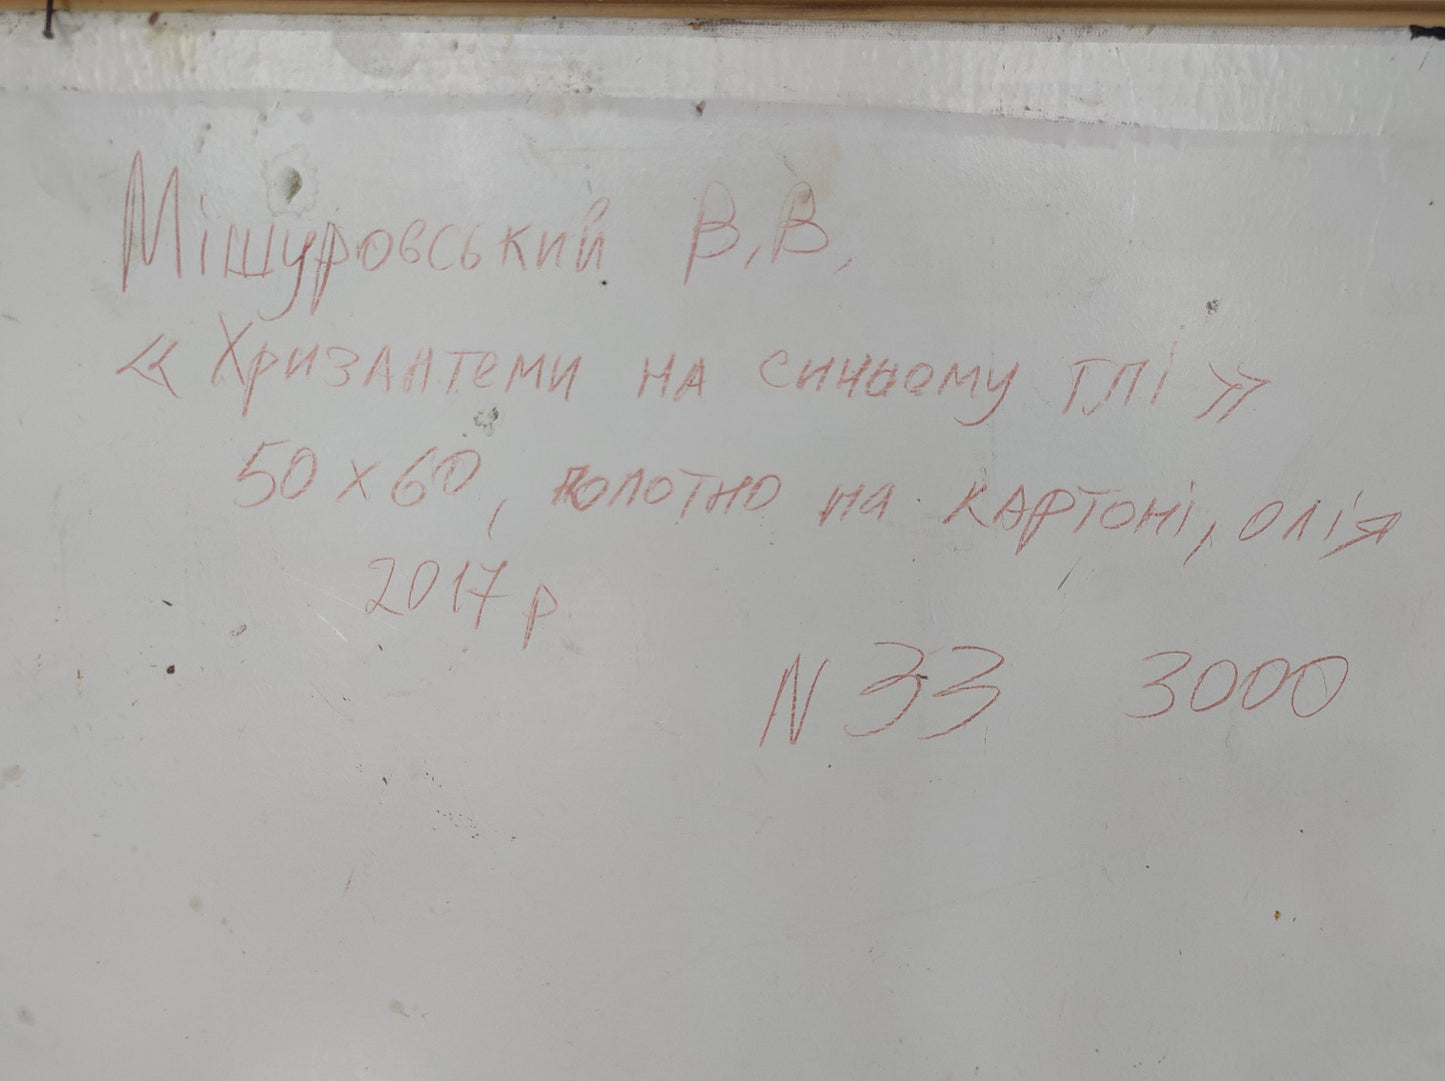 Мішуровський В.В.
«Хризантеми на синьому тлі»
50х60, полотно на картоні, олія
2017 р
N 33 3000